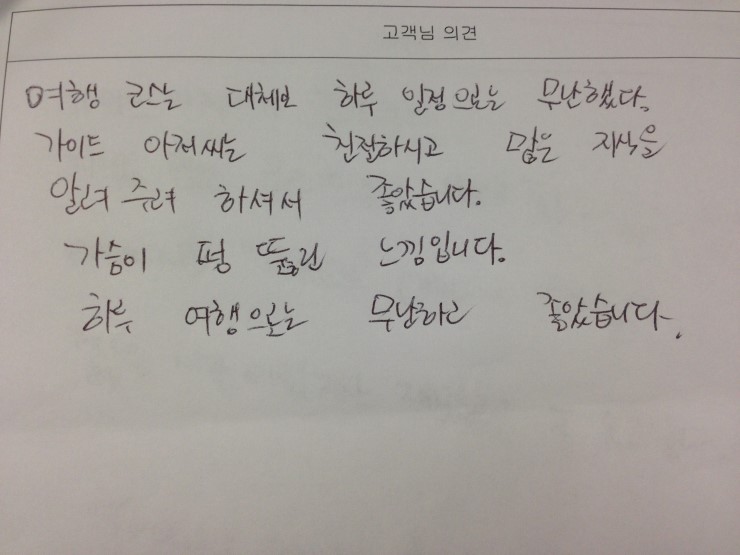 고객님 의견
여행 코스는 대체로 하루 일정으로는 무난했다.
가이드 아저씨는 친절하시고 많은 지식을
알려 주려 하셔서 좋았습니다.
가슴이 펑 뚫린 느낌입니다.
하루 여행으로는 무난하고 좋았습니다.